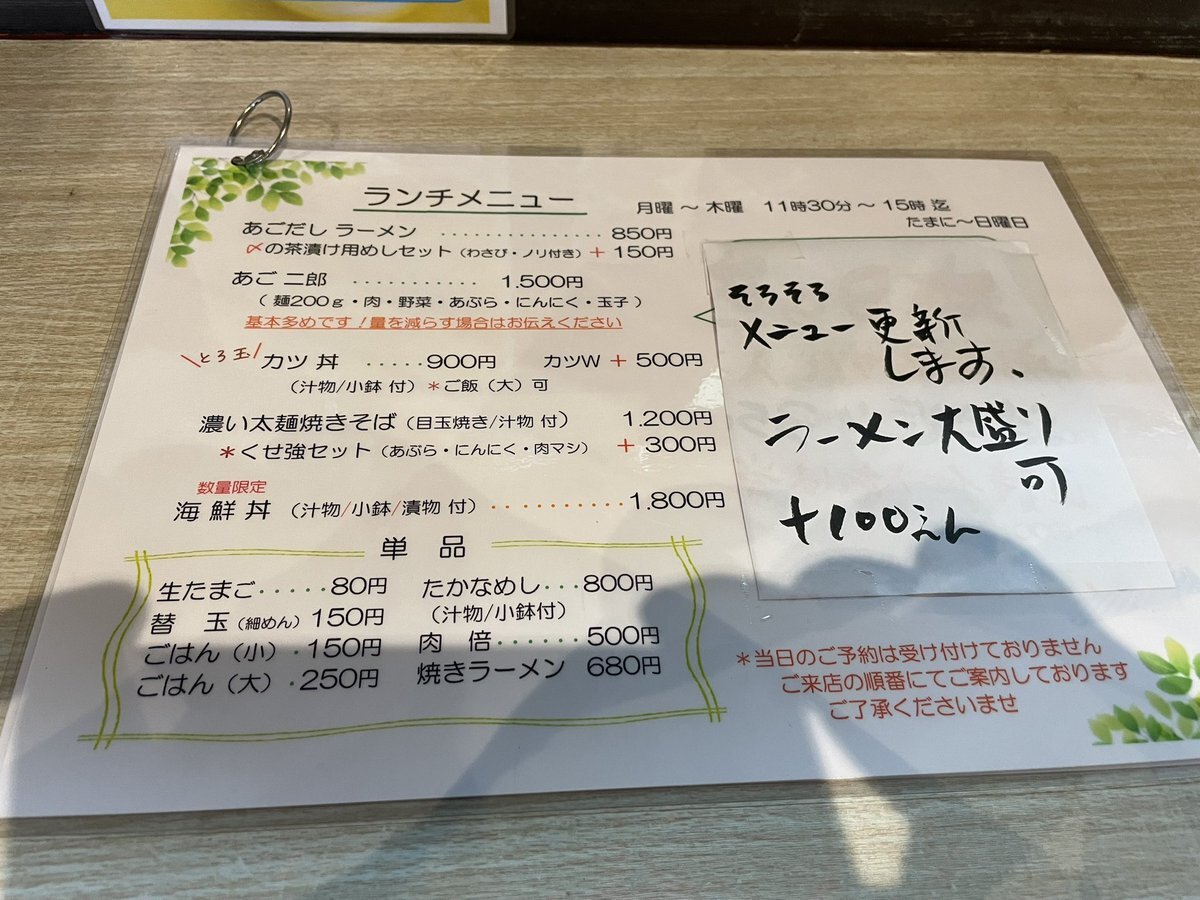 ランチメニュー
月曜 ～ 木曜 11時30分 ～ 15時 迄
たまに～日曜日
あごだし ラーメン ................ 850円
〆の茶漬け用めしセット（わさび・ノリ付き）＋ 150円
あご 二郎 ............ 1.500円
（ 麺200ｇ・肉・野菜・あぶら・にんにく・玉子 ）
基本多めです！量を減らす場合はお伝えください
\とろ玉/ カツ 丼 ..... 900円 カツW ＋ 500円
（汁物/小鉢 付）＊ご飯（大）可
濃い太麺焼きそば（目玉焼き/汁物 付） 1.200円
＊くせ強セット（あぶら・にんにく・肉マシ） ＋ 300円
数量限定
海 鮮 丼 （汁物/小鉢/漬物 付）.......... 1.800円
単 品
生たまご ..... 80円
替 玉（細めん）150円
ごはん（小）. 150円
ごはん（大）. 250円
たかなめし .... 800円
（汁物/小鉢付）
肉 倍 ....... 500円
焼きラーメン 680円
そろそろ
メニュー更新
します、
ラーメン大盛り
可
＋100えん
＊当日のご予約は受け付けておりません
ご来店の順番にてご案内しております
ご了承くださいませ